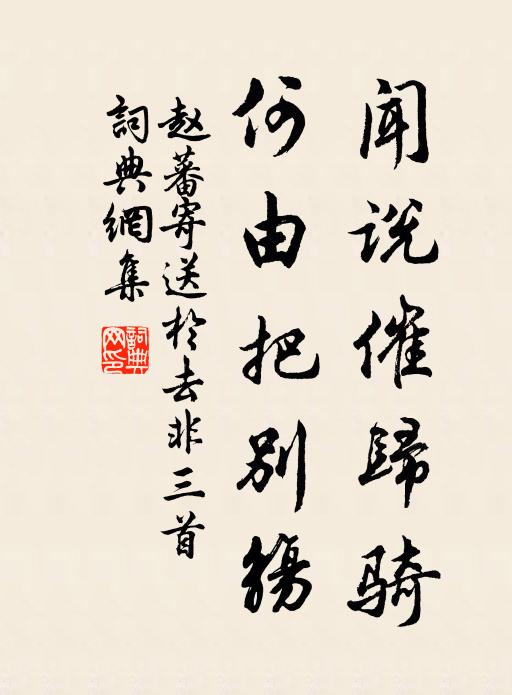 闻说催歸骑
何由把别觞
赵蕃寄送於去非三首
詞典網集
詞典網印